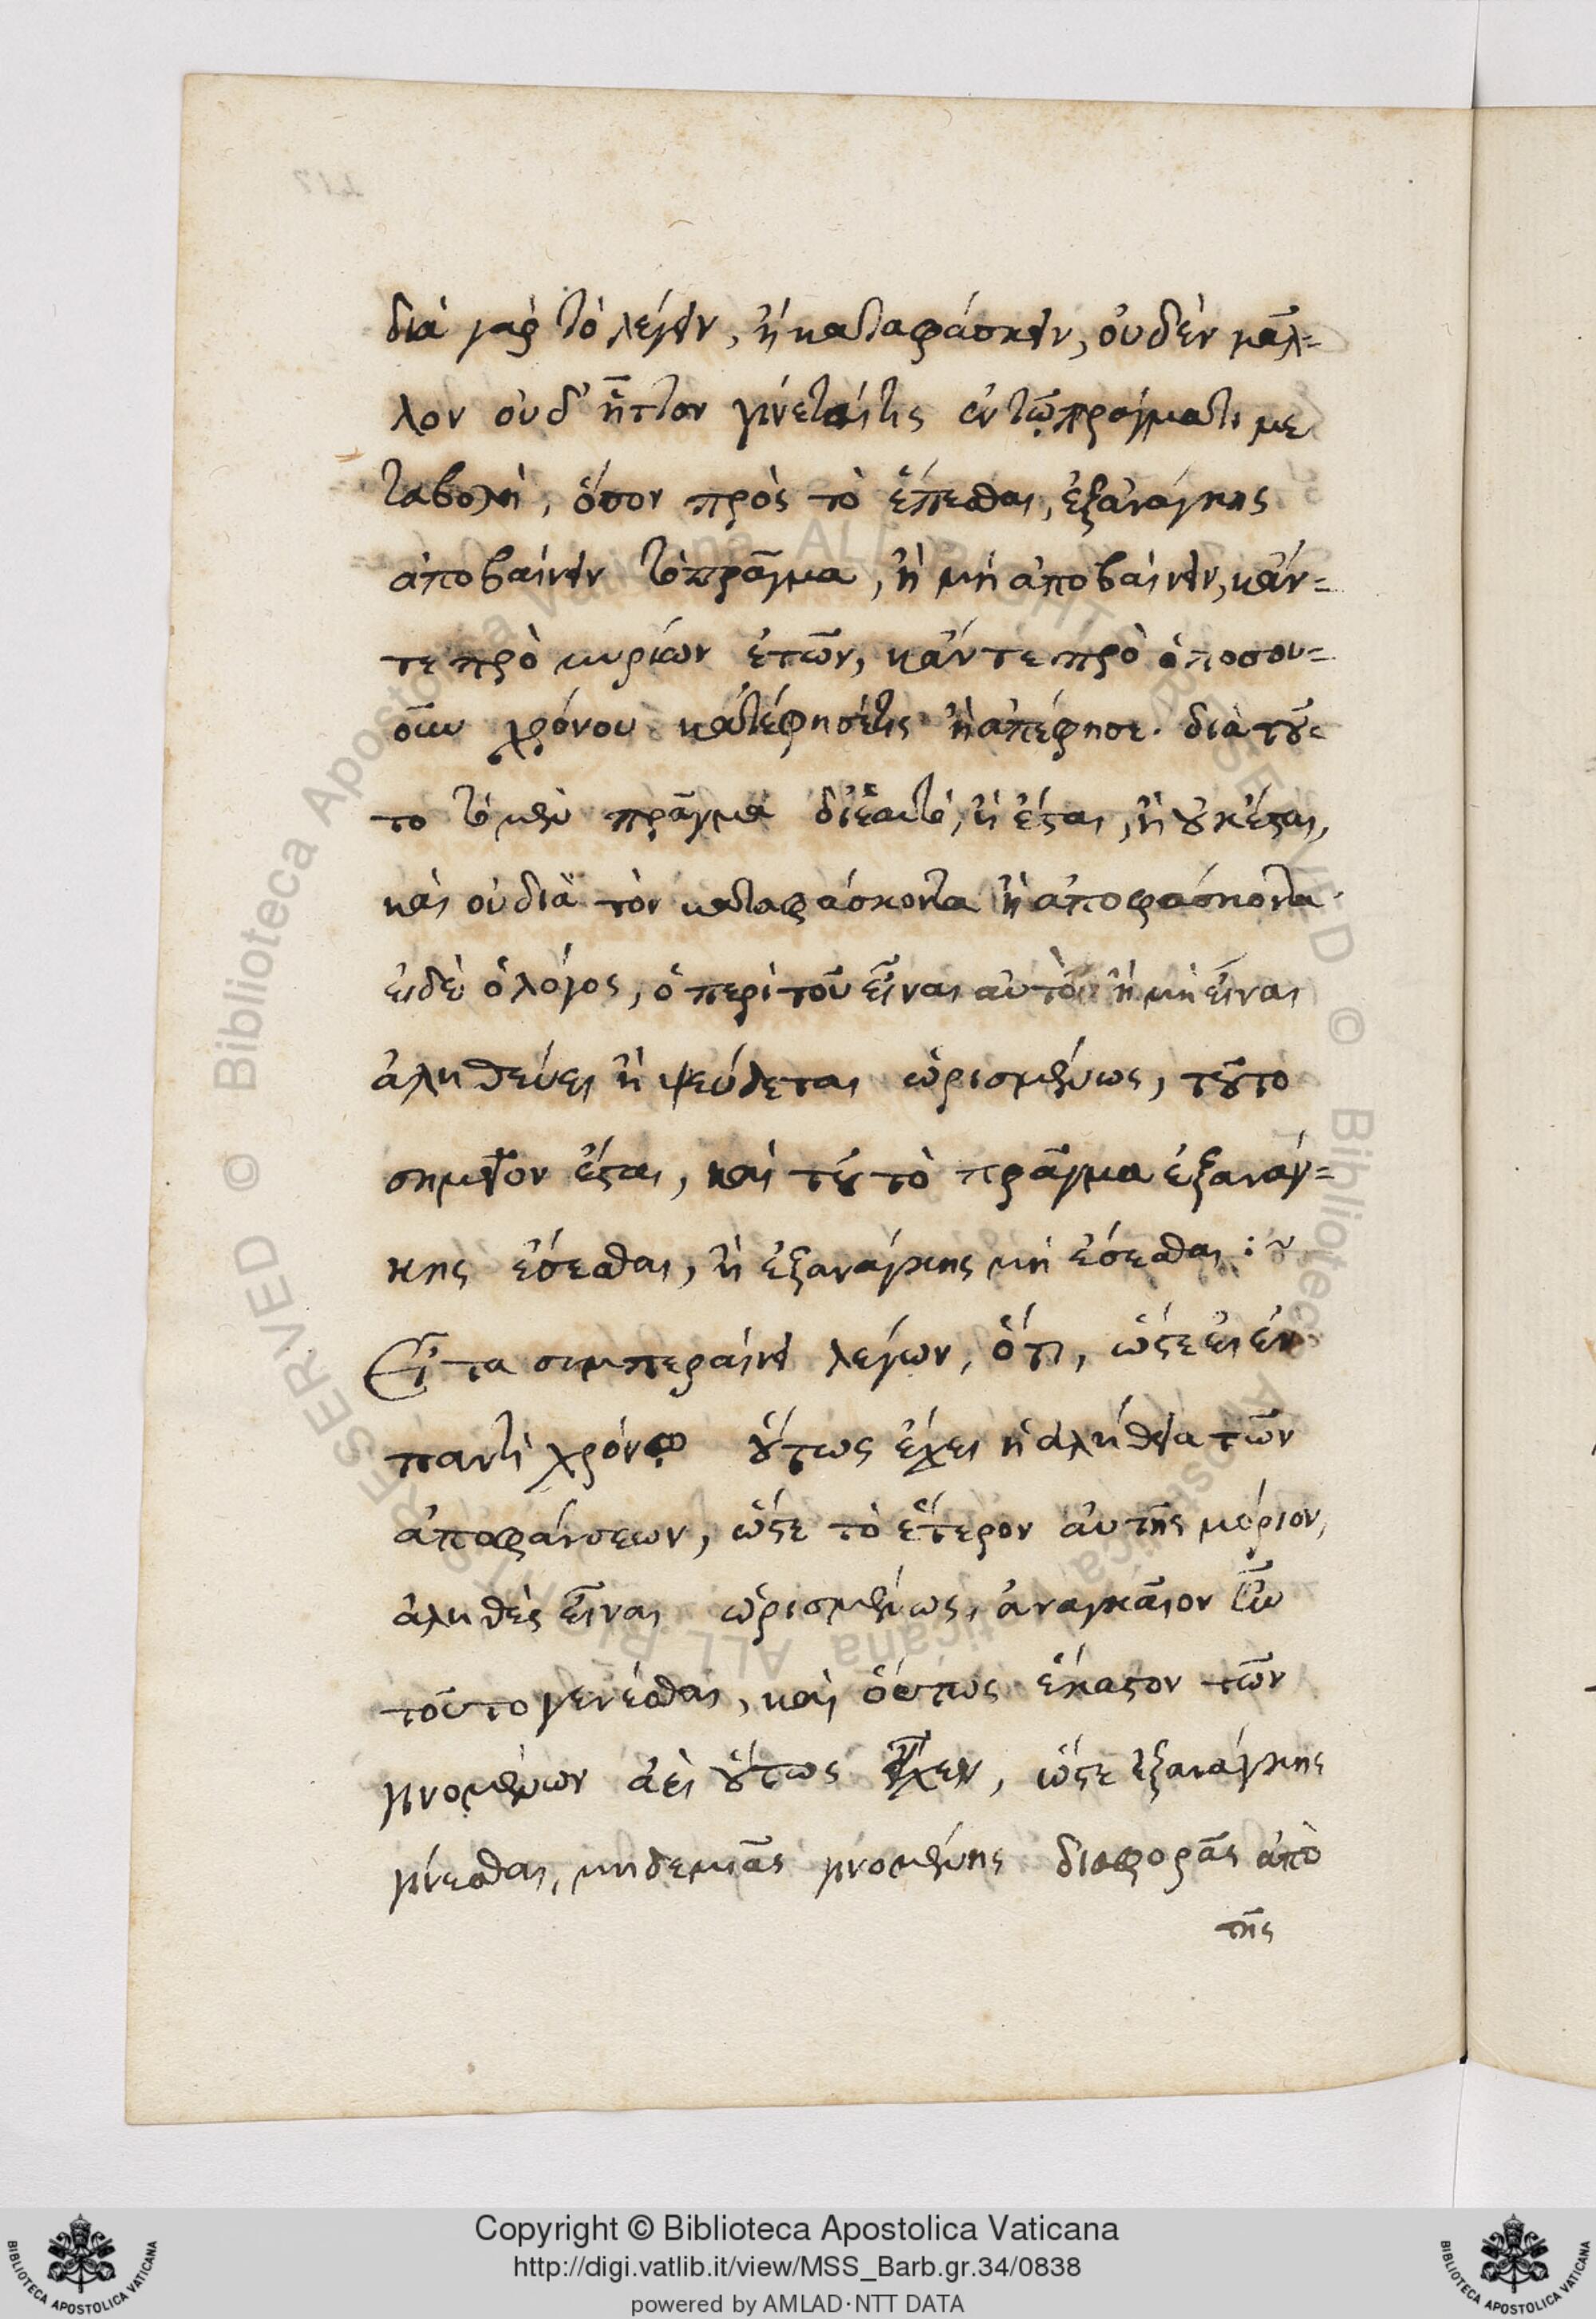 διὰ γαρ τὸ λέγειν, ἢ καταφάσκειν, οὐδὲν μᾶλ=
λον οὐδ' ἧττον γίνεταί τις ἐν τῷ πράγματι με
ταβολὴ, ὅσον πρὸς τὸ ἕπεσθαι, ἐξανάγκης
ἀποβαίνειν τὸ πρᾶγμα, ἢ μὴ ἀποβαίνειν, κἄν=
τε πρὸ μυρίων ἐτῶν, κἄν τε πρὸ ὁποσου=
οῦν χρόνου κατέφησέ τις ἢ ἀπέφησε. διὰ τȣ͂=
το τὸ μὲν πρᾶγμα δι' ἑαυτὸ, ἢ ἔσται, ἢ ȣ̓κ ἔσται,
καὶ οὐ διὰ τὸν καταφάσκοντα ἢ ἀποφάσκοντα.
εἰ δὲ ὁ λόγος, ὁ περὶ τοῦ εἶναι αὐτὸ ἢ μὴ εἶναι
ἀληθεύει ἢ ψεύδεται ὡρισμένως, τȣ͂το
σημεῖον ἔσται, καὶ τȣ͂ τὸ πρᾶγμα ἐξανάγ=
κης ἔσεσθαι, ἢ ἐξανάγκης μὴ ἔσεσθαι :~
Εἶτα συμπεραίνει λέγων, ὅτι, ὥστε εἰ ἐν
παντὶ χρόνῳ ȣ̔́τως ἔχει ἡ ἀλήθεια τῶν
ἀποφάνσεων, ὥστε τὸ ἕτερον αὐτῆς μόριον,
ἀληθὲς εἶναι ὡρισμένως, ἀναγκαῖον ἦν
τοῦτο γενέσθαι, καὶ ὅυτως ἕκαστον τῶν
γινομένων ἀεὶ ȣ̔́τως ἔχειν, ὥστε ἐξανάγκης
γίνεσθαι, μηδεμιᾶς γινομένης διαφορᾶς ἀπὸ
τῆς
Copyright © Biblioteca Apostolica Vaticana
http://digi.vatlib.it/view/MSS_Barb.gr.34/0838
powered by AMLAD·NTT DATA